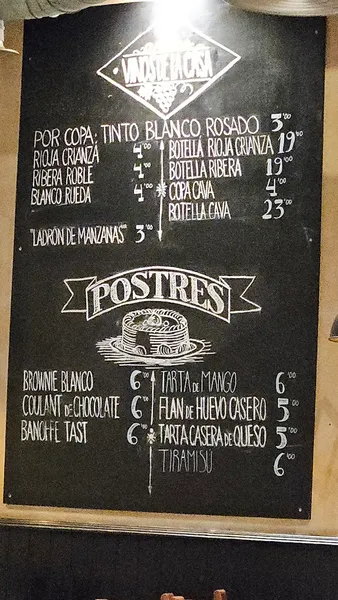 VINOS DE LA CASA
POR COPA: TINTO BLANCO ROSADO 3'00
RIOJA CRIANZA 4'00
RIBERA ROBLE 4'00
BLANCO RUEDA 4'00
"LADRÓN DE MANZANAS" 3'00
BOTELLA RIOJA CRIANZA 19'00
BOTELLA RIBERA 19'00
COPA CAVA 4'00
BOTELLA CAVA 23'00
POSTRES
BROWNIE BLANCO 6'00
COULANT DE CHOCOLATE 6'00
BANOFFE TAST 6'00
TARTA DE MANGO 6'00
FLAN DE HUEVO CASERO 5'00
TARTA CASERA DE QUESO 5'00
TIRAMISÚ 6'00